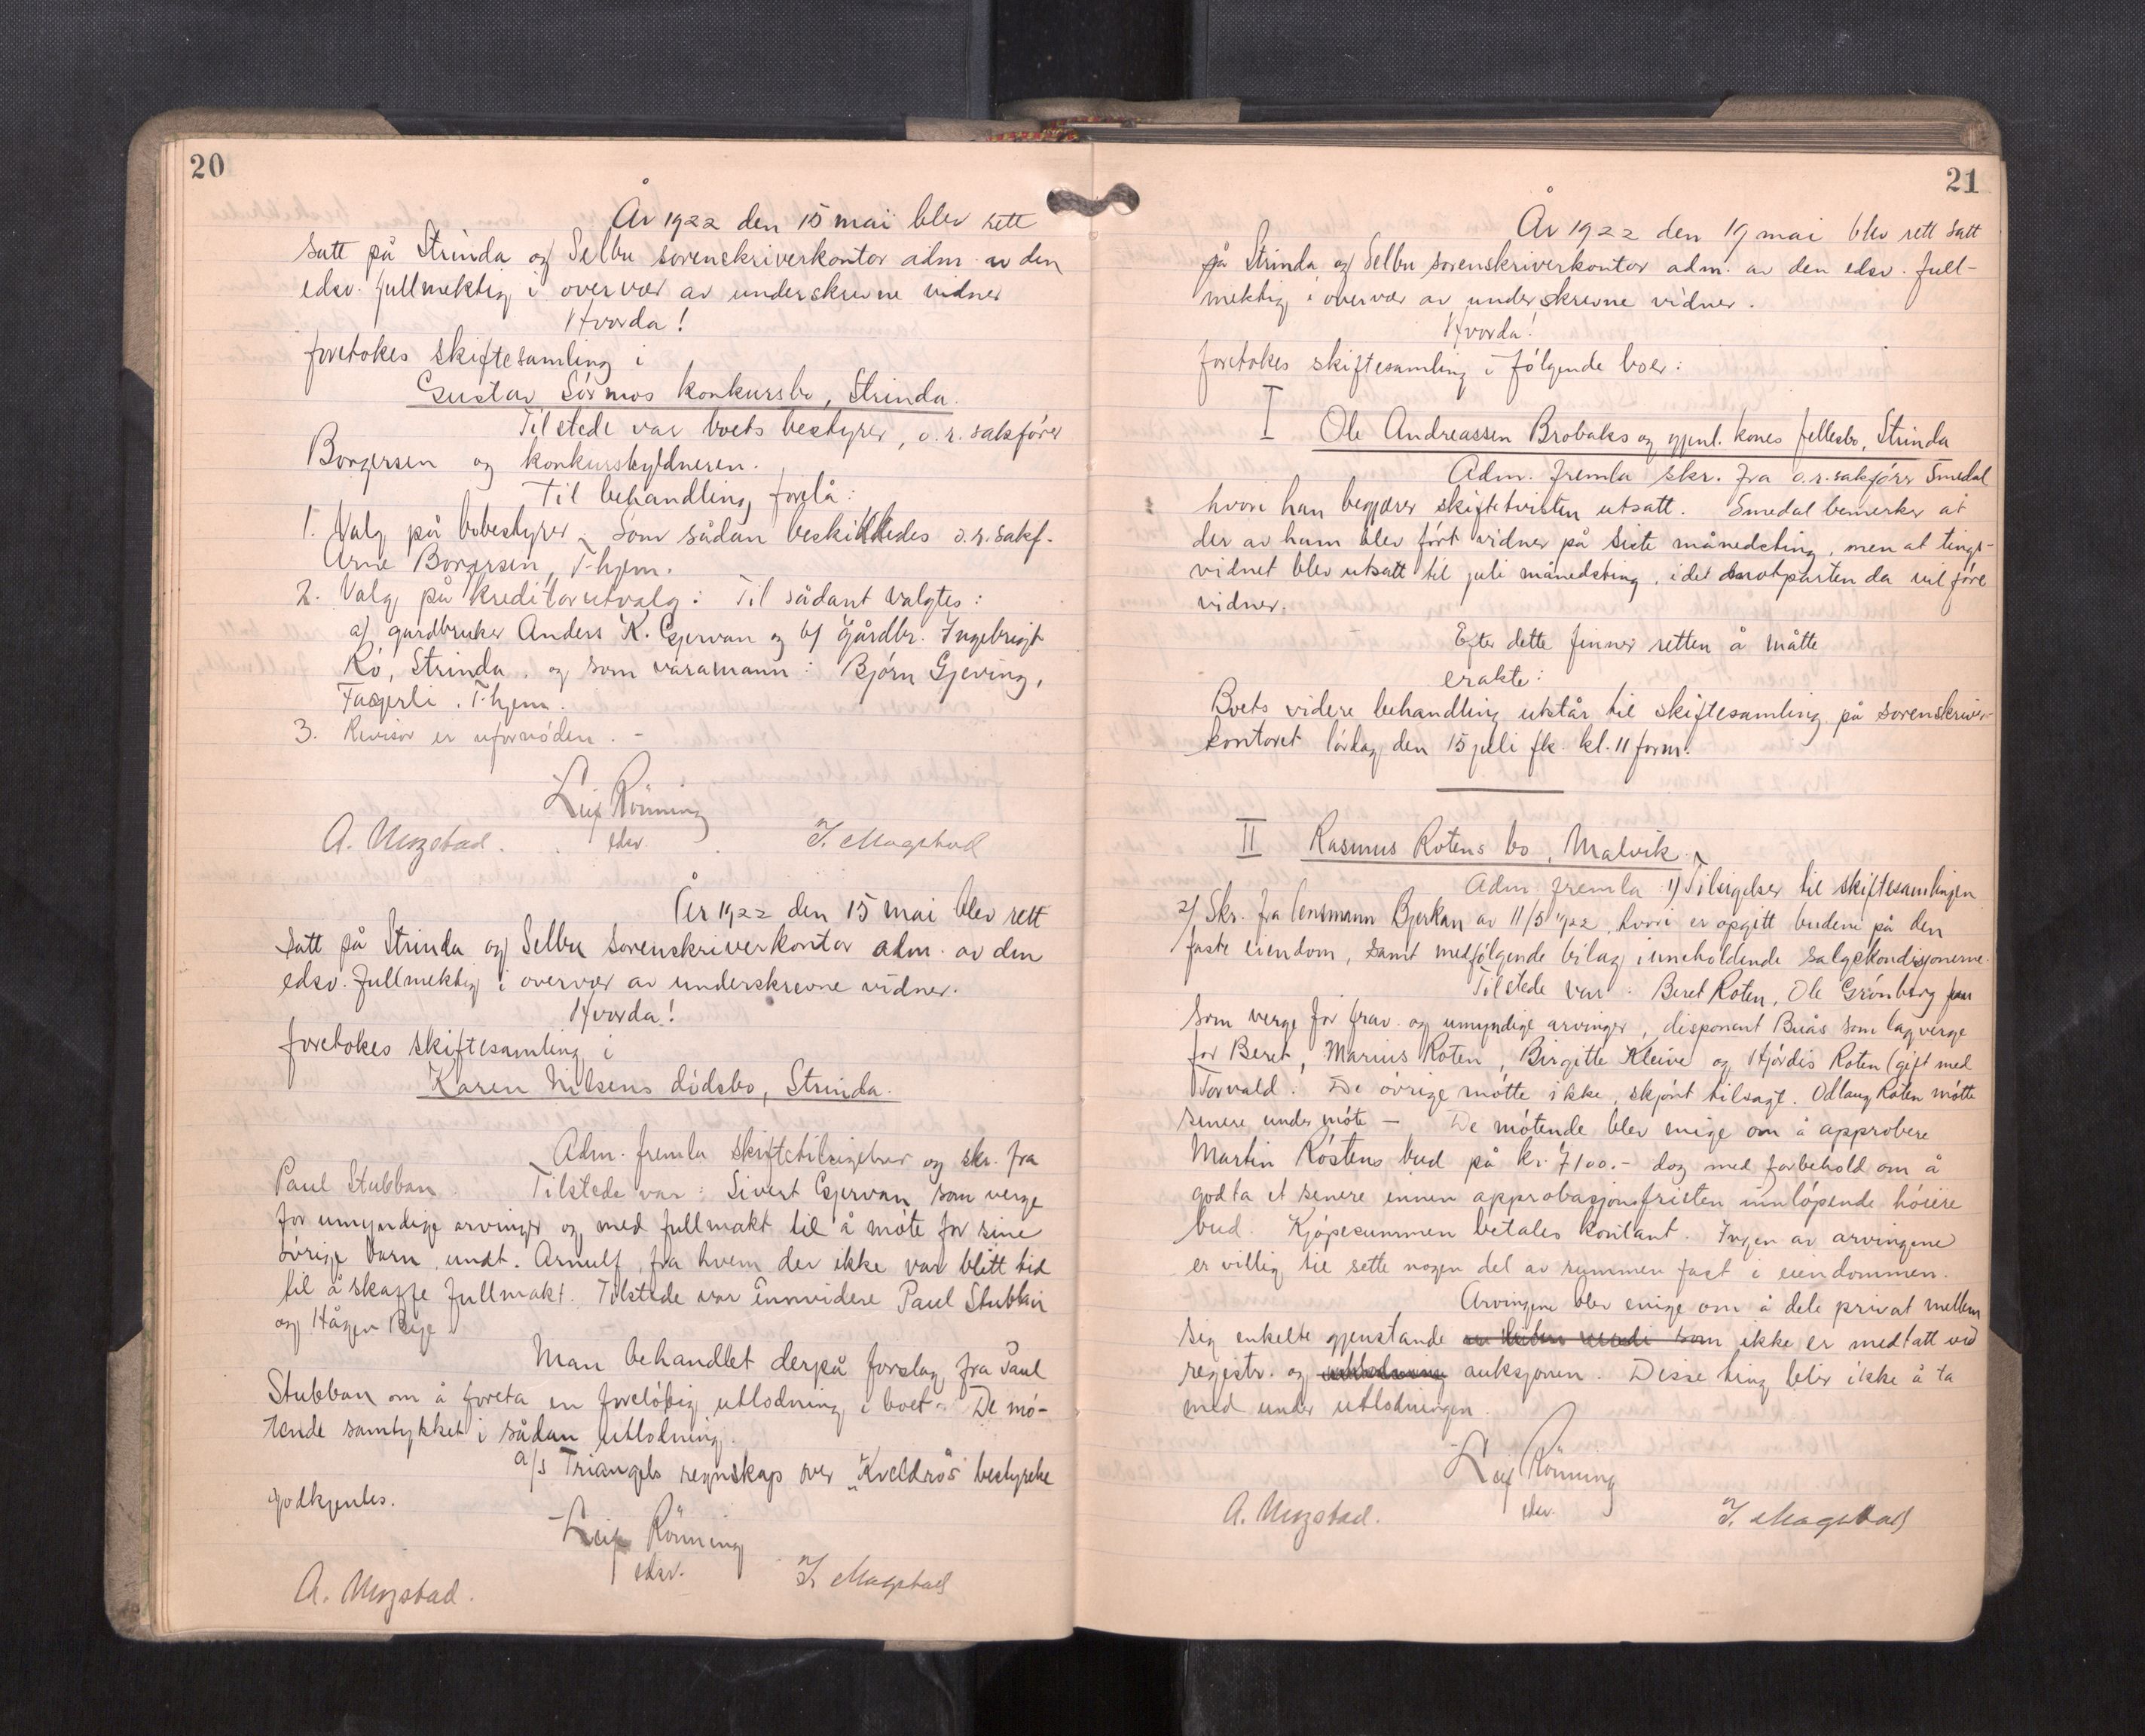 20
År 1922 den 15 mai blev rett
satt på Strinda og Selbu sorenskriverkontor adm. av den
edsv. fullmektig i overvær av underskrevne vidner
Hvorda!
foretokes skiftesamling i
Gustav Sörmos konkursbo, Strinda.
Tilstede var boets bestyrer, o.r. sakförer
Borgersen og konkursskyldneren.
Til behandling forelå:
1. Valg på bobestyrer. Som sådan beskikkedes o.r. sakf.
Arne Borgersen, T-hjem.
2. Valg på kreditorutvalg: Til sådant valgtes:
a) gardbruker Anders K. Gjervan og b) Gårdbr. Ingebrigt
Rö, Strinda, og som varamann: Björn Gjeving,
Fagerli, T-hjem.
3. Revisor er uforNöden. -
Leif Rönning
edsv.
A. Mogstad. J. Magstad
År 1922 den 15 mai blev rett
satt på Strinda og Selbu sorenskriverkontor adm. av den
edsv. fullmektig i overvær av underskrevne vidner.
Hvorda!
foretokes skiftesamling i
Karen Nilsens dödsbo, Strinda.
Adm. fremla skiftetilsigelser og skr. fra
Paul Stubban. Tilstede var: Sivert Gjervan som verge
for umyndige arvinger og med fullmakt til å möte for sine
övrige barn, undt. Arnulf, fra hvem der ikke var blitt tid
til å skaffe fullmakt. Tilstede var ennvidere Paul Stubban
og Hågen
Man behandlet derpå forslag fra Paul
Stubban om å foreta en forelöbig utlodning i boet. De mö-
tende samtykket i sådan utlodning.
a/s Triangels regnskap over "Kveldrös" bestyrelse
godkjentes.
Leif Rönning
edsv.
A. Mogstad. J. Magstad
21
År 1922 den 19 mai blev rett satt
på Strinda og Selbu sorenskriverkontor adm. av den edsv. full-
mektig i overvær av underskrevne vidner.
Hvorda!
foretokes skiftesamling i fölgende boer:
I Ole Andreassen Brobaks og gjenl. kones fellesbo, Strinda
Adm. fremla skr. fra o.r. sakförer Smedal
hvori han begjærer skiftetvisten utsatt. Smedal bemerker at
der av ham blev fört vidner på siste månedsting, men at tings-
vidnet blev utsatt til juli månedsting, idet motparten da vil före
vidner.
Efter dette finner retten å måtte
erakte:
Boets videre behandling utstår til skiftesamling på sorenskriver-
kontoret lördag den 15 juli fk. kl. 11 form.
II Rasmus Rotens bo, Malvik.
Adm. fremla 1) Tilsigelser til skiftesamlingen
2) Skr. fra lensmann Bjerkan av 11/5 1922, hvori er opgitt budene på den
faste eiendom, samt medfölgende bilag inneholdende salgskondisjonerne.
Tilstede var: Beret Roten, Ole Grönberg
som verge for frav. og umyndige arvinger, disponent Buås som lagverge
for Beret, Marius Roten, Birgitte Kleive og Hjördis Roten (gift med
Torvald. De övrige mötte ikke, skjönt tilsagt. Odlaug Roten mötte
senere under möte - De mötende blev enige om å approbere
Martin Röstens bud på kr. 7100.- dog med forbehold om å
godta et senere innen approbasjonsfristen innlöpende höiere
bud. Kjöpesummen betales kontant. Ingen av arvingene
er villig til sette nogen del av summen fast i eiendommen.
Arvingene blev enige om å dele privat mellem
sig enkelte gjenstande som ikke er medtatt ved
registr. og auksjonen. Disse ting blir ikke å ta
med under utlodningen.
Leif Rönning
edsv.
A. Mogstad. J. Magstad